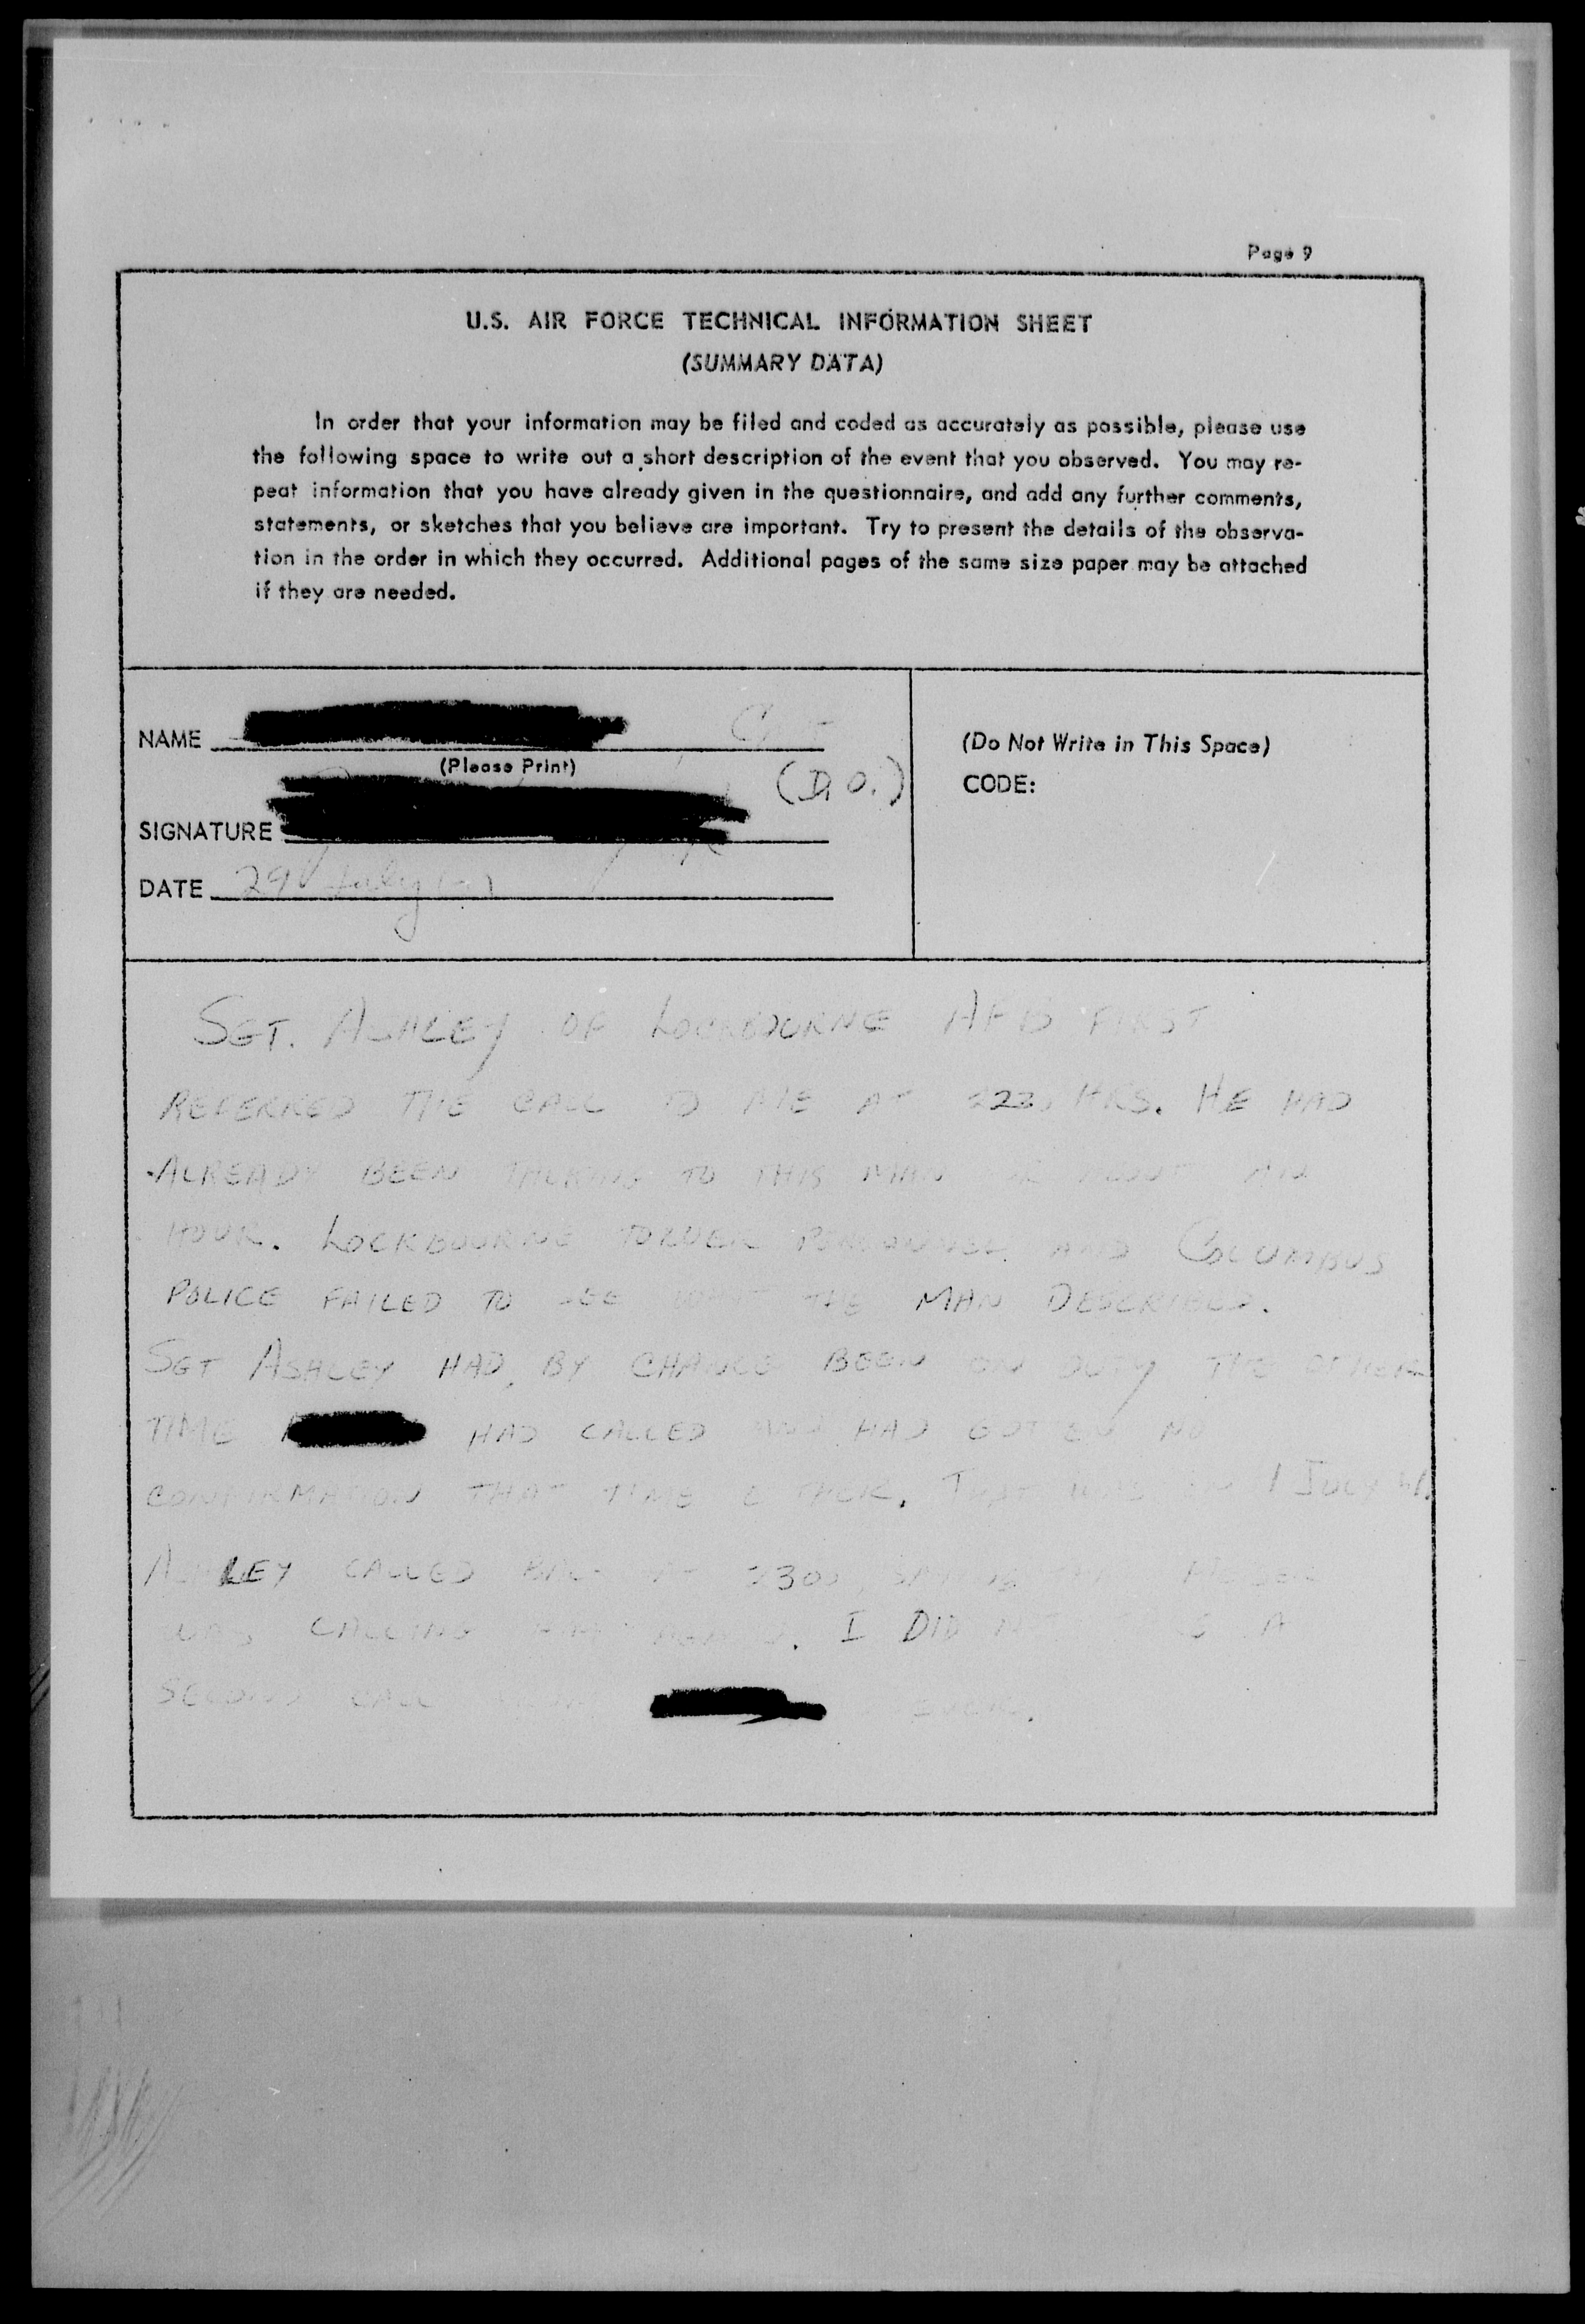 Page 9
U.S. AIR FORCE TECHNICAL INFORMATION SHEET
(SUMMARY DATA)
In order that your information may be filed and coded as accurately as possible, please use
the following space to write out a short description of the event that you observed. You may re-
peat information that you have already given in the questionnaire, and add any further comments,
statements, or sketches that you believe are important. Try to present the details of the observa-
tion in the order in which they occurred. Additional pages of the same size paper may be attached
if they are needed.
NAME
(Please Print)
(D.O.)
SIGNATURE
DATE 29 July
(Do Not Write in This Space)
CODE:
SGT. ASHLEY OF LOCKBOURNE AFB FIRST
REFERRED THE CALL TO ME AT HRS. HE HAD
ALREADY BEEN TALKING TO THIS MAN AN
HOUR. LOCKBOURNE TOWER PERSONNEL AND COLUMBUS
POLICE FAILED TO SEE THE MAN DESCRIBED.
SGT ASHLEY HAD, BY CHANCE BEEN ON DUTY THE OTHER
TIME HAD CALLED AND HAD GOTTEN NO
CONFIRMATION THAT TIME THAT WAS 1 JULY
ASHLEY CALLED BACK AT 2300,
WAS CALLING HIM AGAIN. I DID A
SECOND CALL